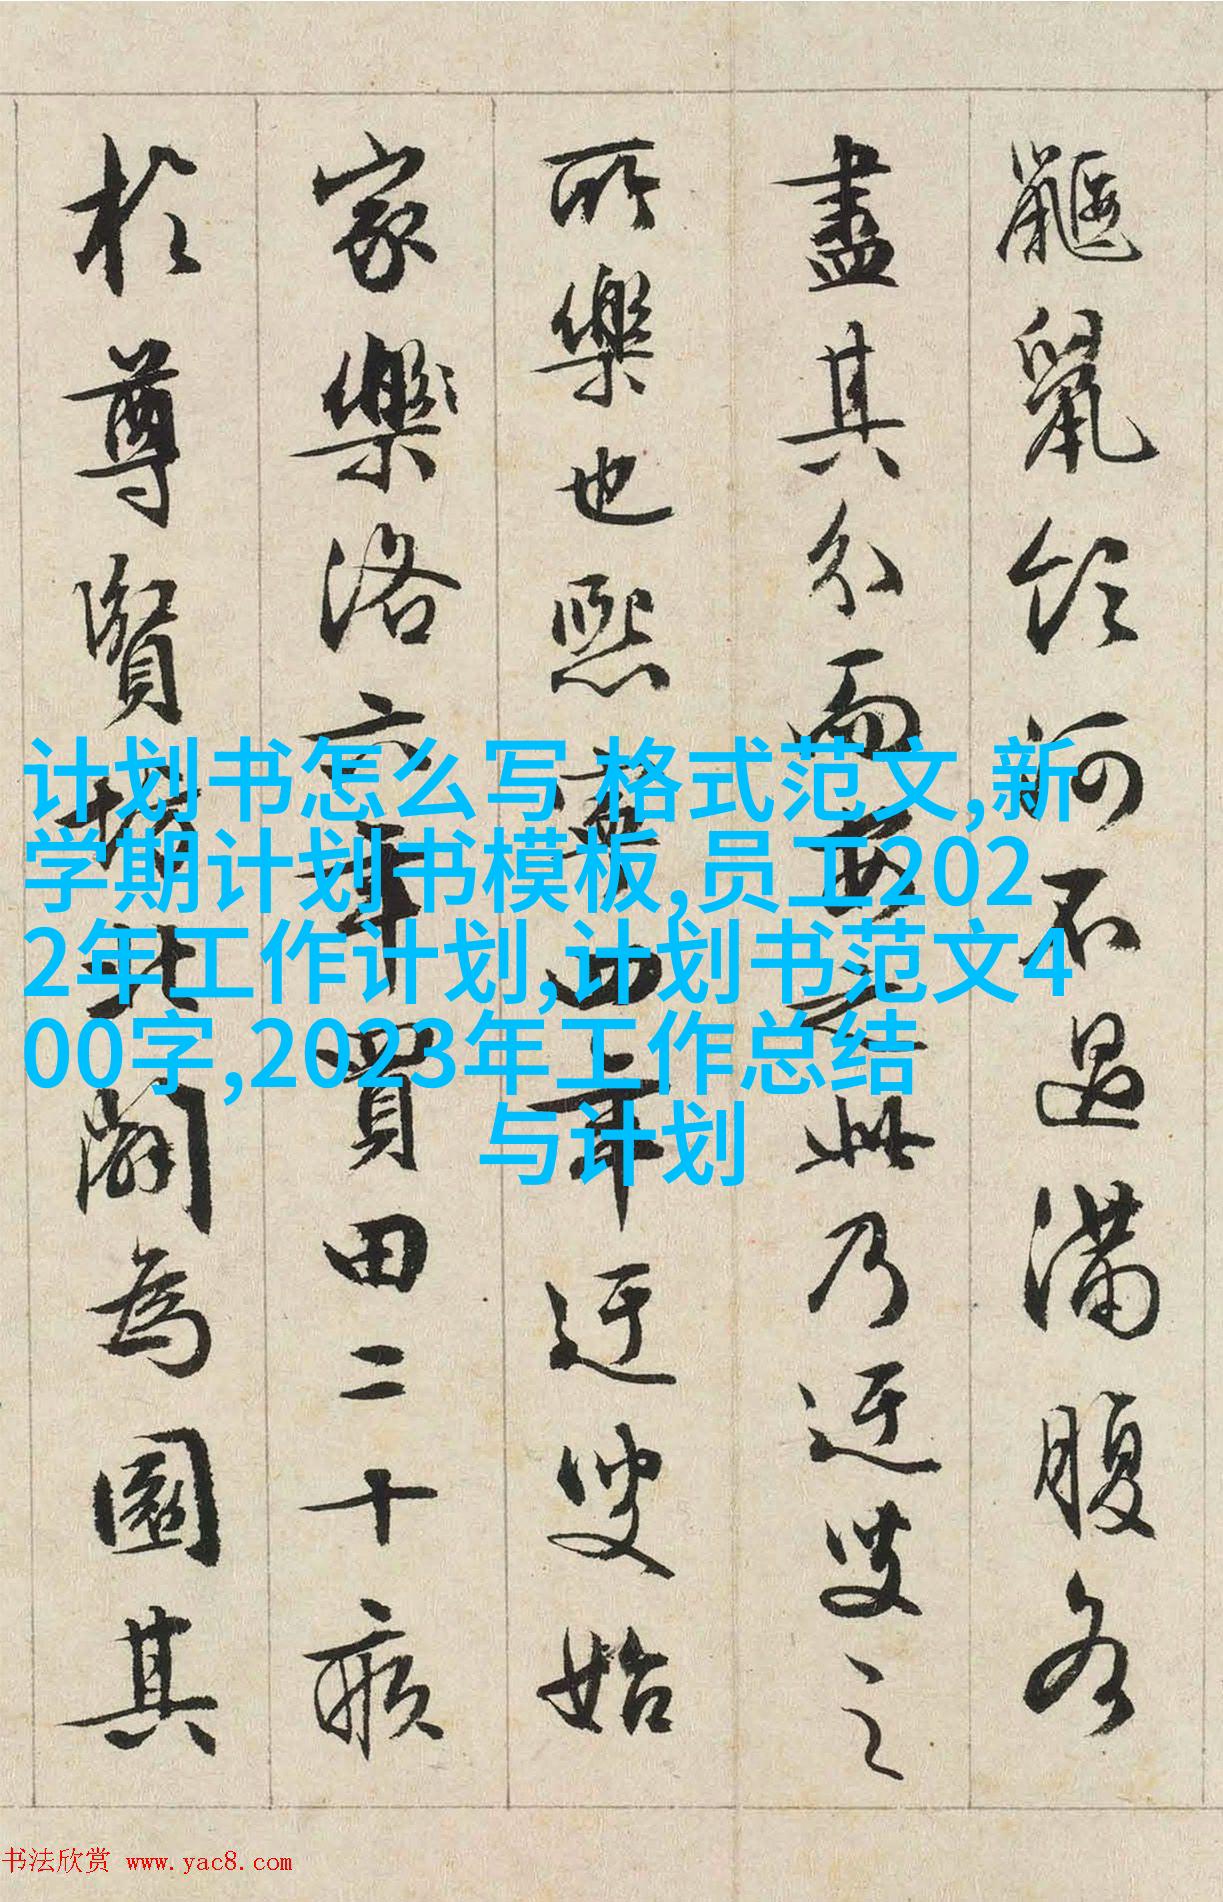 鼴鼠飲河不過滿腹各
盡其分而安之此乃迂叟之
所樂也熙寧四年迂叟始
家樂洛六年買田二十畝
於尊賢坊北闢為園其
计划书怎么写 格式范文,新
学期计划书模板,员工202
2年工作计划,计划书范文4
00字,2023年工作总结
与计划
书法欣赏 www.yac8.com